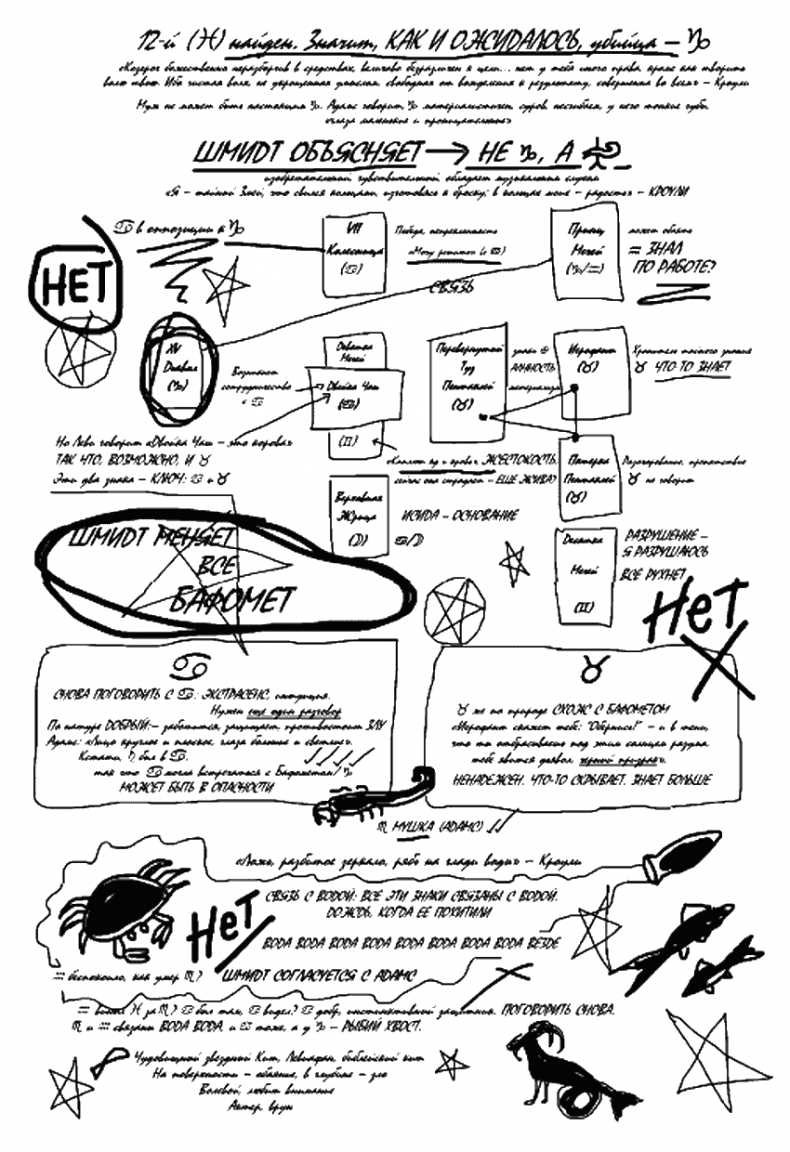 12-й (♓) найден. Значит, КАК И ОЖИДАЛОСЬ, убийца – ♑
«Козерог божественно неразборчив в средствах, величаво безразличен к цели... нет у тебя иного права, кроме как творить
волю твою. Ибо чистая воля, не укрощенная умыслом, свободная от вожделения к результату, совершенна во всем» – Кроули
Муж не может быть настоящим ♑. Адамс говорит, ♑ материалистичен, суров, несгибаем, у него тонкие губы,
«глаза маленькие и проницательные»
ШМИДТ ОБЪЯСНЯЕТ → НЕ ♑, А
изобретательный, чувствительный, обладает музыкальным слухом
«Я – тайный Змей, что свился кольцами, изготовясь к броску; в кольцах моих – радость» – КРОУЛИ
♋ в оппозиции к ♑
НЕТ
VII
Колесница
(♋)
Победа, непреклонность
«Могу решить» (с ♋)
СВЯЗЬ
Принц
Мечей
(♑/♒)
может обаять
= ЗНАЛ
ПО РАБОТЕ?
XV
Дьявол
(♑)
Возможно
сотрудничество
с ♋
Девятка
Мечей
Двойка Чаш
(♋)
(♊)
Перевернутый
Туз
Пентаклей
(♉)
знак ♉
АЛЧНОСТЬ
Иерофант
(♉)
Хранитель тайного знания
♉ ЧТО-ТО ЗНАЕТ
Но Леви говорит «Двойка Чаш – это корова»
ТАК ЧТО, ВОЗМОЖНО, И ♉
Эти два знака – КЛЮЧ: ♋ и ♉
ЖЕСТОКОСТЬ.
сейчас она страдает – ЕЩЕ ЖИВА?
Пятерка
Пентаклей
(♉)
Разочарование, препятствие
♉ не говорит
Верховная
Жрица
(☽)
ИСИДА – ОСНОВАНИЕ
♋/☽
Десятка
Мечей
(♊)
РАЗРУШЕНИЕ –
Я РАЗРУШАЮСЬ
ВСЕ РУХНЕТ
ШМИДТ МЕНЯЕТ
ВСЕ
БАФОМЕТ
НеТ
♋
СНОВА ПОГОВОРИТЬ С ♋: ЭКСТРАСЕНС, интуиция.
Нужен еще один разговор
По натуре ДОБРЫЙ – заботится, защищает, противостоит ЗЛУ
Адамс: «Лицо круглое и плоское, глаза большие и светлые».
Кстати, ♄ был в ♋.
так что ♋ могла встречаться с Бафометом! ♑
МОЖЕТ БЫТЬ В ОПАСНОСТИ
♉
♉ же по природе СХОЖ С БАФОМЕТОМ
«Иерофант скажет тебе: "Обернись!" – и в тени,
что ты отбрасываешь под этим солнцем разума,
тебе явится дьявол, черный призрак».
НЕНАДЕЖЕН. ЧТО-ТО СКРЫВАЕТ. ЗНАЕТ БОЛЬШЕ
♏ МУШКА (АДАМС)
«Ложь, разбитое зеркало, рябь на глади воды» – Кроули
НеТ
СВЯЗЬ С ВОДОЙ: ВСЕ ЭТИ ЗНАКИ СВЯЗАНЫ С ВОДОЙ.
ДОЖДЬ, КОГДА ЕЕ ПОХИТИЛИ
ВОДА ВОДА ВОДА ВОДА ВОДА ВОДА ВОДА ВОДА ВЕЗДЕ
♒ беспокоило, как умер ♏? ШМИДТ СОГЛАСУЕТСЯ С АДАМС
♒ винил ♓ за ♏? ♋ был там, ♋ видел? ♋ добр, инстинктивный защитник. ПОГОВОРИТЬ СНОВА.
♏ и ♒ связаны ВОДА ВОДА, и ♋ тоже, а у ♑ – РЫБИЙ ХВОСТ.
Чудовищной звездный Кит, Левиафан, библейский кит
На поверхности – обаяние, в глубине – зло
Волевой, любит внимание
Актер, врун